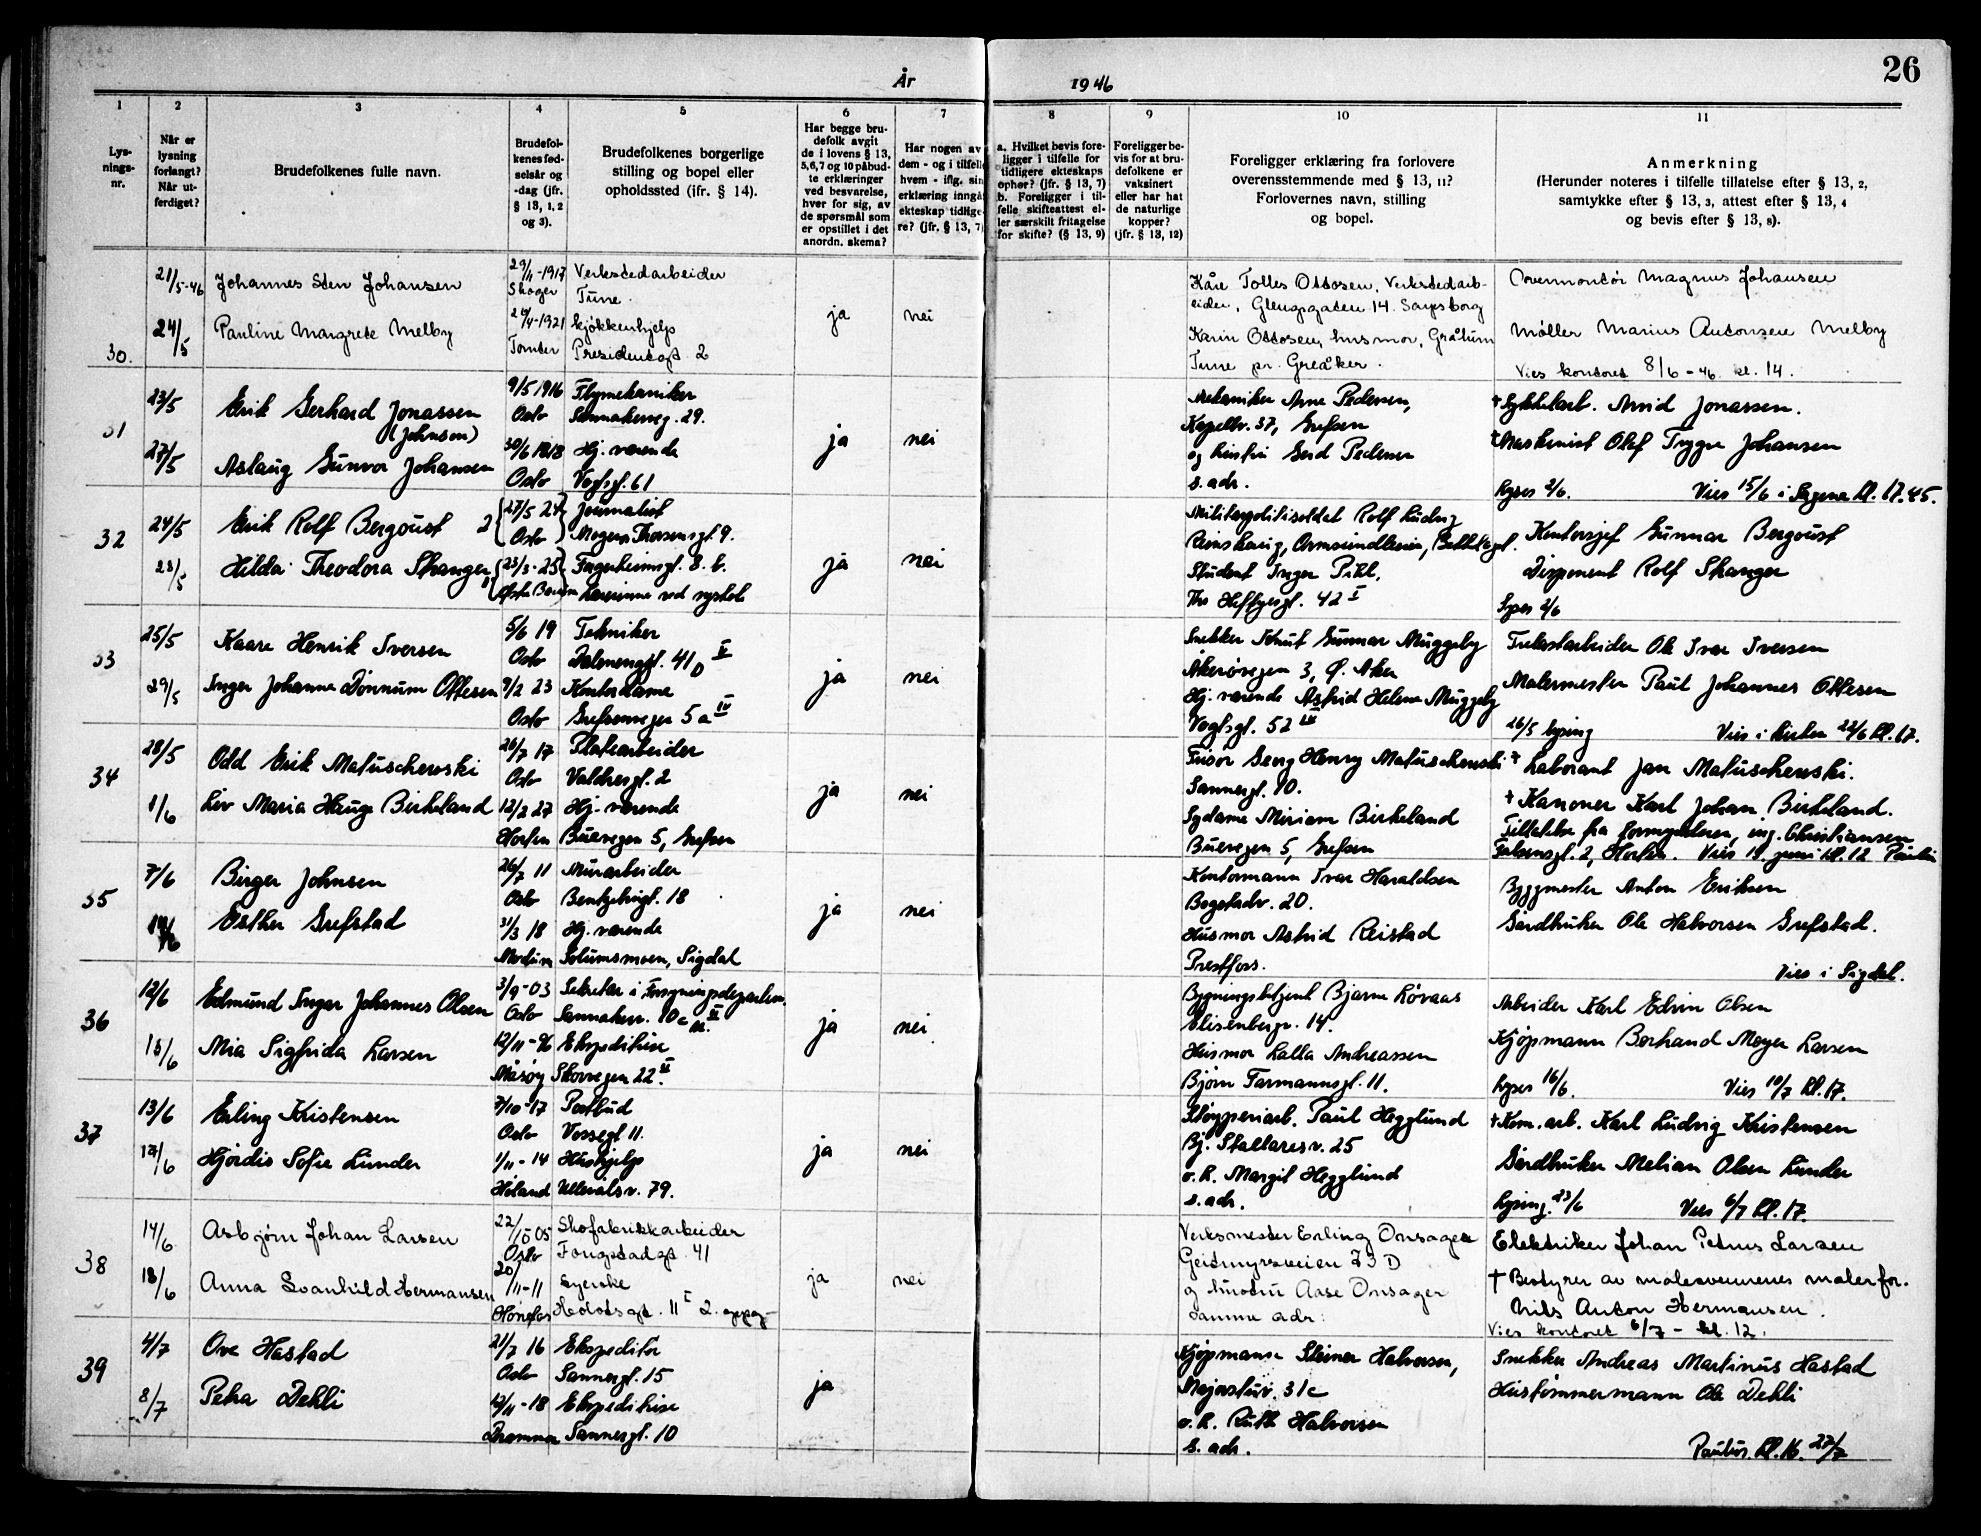 26
År 1946
1
2
3
4
5
6
7
8
9
10
11
Lys-
nings-
nr.
Når er
lysning
forlangt?
Når ut-
ferdiget?
Brudefolkenes fulle navn.
Brudefol-
kenes fød-
selsår og
-dag (jfr.
§ 13, 1, 2
og 3).
Brudefolkenes borgerlige
stilling og bopel eller
opholdssted (ifr. § 14).
Har begge bru-
defolk avgit
de i lovens § 13,
5,6,7 og 10 påbud-
te erklæringer
ved besvarelse,
hver for sig, av
de spørsmål som
er opstillet i det
anordn. skema?
Har nogen av
dem - og i tilfelle
hvem - iflg. sin
erklæring inngå
ekteskap tidlige-
re? (jfr. § 13, 7)
a. Hvilket bevis fore-
ligger i tilfelle for
tidligere ekteskaps
ophør? (jfr. § 13, 7)
b. Foreligger i til-
felle skifteattest el-
ler særskilt fritagelse
for skifte? (§ 13, 9)
Foreligger be-
vis for at bru-
defolkene er
vaksinert
eller har hat
de naturlige
kopper?
(jfr. § 13, 12)
Foreligger erklæring fra forlovere
overensstemmende med § 13, 11?
Forlovernes navn, stilling
og bopel.
Anmerkning
(Herunder noteres i tilfelle tillatelse efter § 13, 2,
samtykke efter § 13, 3, attest efter § 13, 4
og bevis efter § 13, 8).
30.
21/5-46 Johannes Sten Johansen
29/11-1917 Verkstedarbeider
Skoger Tune.
24/5 Pauline Margrete Melby
1921 Kjøkkenhjelp
Tomter Presidentgt. 2
ja
nei
Kåre Tolles Ottosen, Verkstedarb-
eider, Glengsgaten 14. Sarpsborg
Karin Ottosen, husmor, Grålum
Tune pr. Greåker.
Ovenmontør Magnus Johansen
Møller Marius Antonsen Melby
Vies kontoret 8/6-46. kl. 14.
31
23/5 Erik Gerhard Jonassen
(Johnson)
9/5 1916 Flymekaniker
Oslo Sannakerveg. 29.
27/5 Aslaug Gunvor Johansen
30/6 1918 Hj. værende
Oslo Vogtsgt. 61
ja
nei
Mekaniker Arne Pedersen,
Kapellv. 37, Grefsen
og hustru Gerd Pedersen
s. adr.
† Sykkelarb. Arvid Jonassen.
† Maskinist Olaf Trygve Johansen
Lyses 2/6. Vies 15/6 i Sagene kl. 17.45.
32
24/5 Erik Rolf Bergquist 2
27/5 24 Journalist
Oslo Mogens Thorsensgt. 9.
28/5 Hilda Theodora Stranger
23/3-25 Fagerheimsgt. 8. b.
Østre Bærum Lærerinne ved sykok
ja
nei
Militærpolitisoldat Rolf Ludvig
Student Inger Pihl,
Ths Heftyesgt. 42 I
Kontorsjef Gunnar Bergquist
Disponent Rolf Stranger
Lyses 2/6
33
25/5 Kaare Henrik Iversen
5/6 19 Tekniker
Oslo Dalenenggt. 41 D V
29/5 Inger Johanne Dønnum Ottesen
9/2 23 Kontordame
Oslo Grefsenvegen 5 a IV
ja
nei
Snekker Knut Gunnar Muggeby
Akerøvegen 3, Ø. Aker
Hj. værende Astrid Helene Muggeby
Vogtsgt. 52 III
Trelastarbeider Ole Ivar Iversen
Malermester Paul Johannes Ottesen
26/5 lysing Vies i kirken 22/6 kl. 17.
34
28/5 Odd Erik Matuschewski
26/7 17 Platearbeider
Oslo Valdresgt. 2
1/6 Liv Maria Hauge Birkeland
12/2 27 Hj. værende
Horten Buevegen 5, Grefsen
ja
nei
Frisør Georg Henry Matuschewski
Sannergt. 10.
Sydame Miriam Birkeland
Buevegen 5, Grefsen
† Laborant Jan Matuschewski.
† Kanoner Karl Johan Birkeland.
Tillatelse fra formynderen, ing. Christiansen
Falsensgt. 2, Horten. Vies juni kl. 12 Paulus
35
7/6 Birger Johnsen
26/7 11 Murarbeider
Oslo Bentzebrugt. 18
Esther Grefstad
31/3 18 Hj. værende
Modum Solumsmoen, Sigdal
ja
nei
Kontormann Ivar Haraldsen
Bogstadv. 20.
Husmor Astrid Reistad
Prestfoss.
Byggmester Anton Eriksen
Gårdbruker Ole Halvorsen Grefstad.
Vies i Sigdal.
36
12/6 Edmund Inger Johannes Olsen
3/9-03 Sekretær i Forsyningsdepartem.
Oslo Sannakerv. 10 c
15/6 Mia Sigfrida Larsen
12/11-26 Ekspeditrise
Måsøy Skovvegen 22.
ja
nei
Bygningsbetjent Bjarne Løvaas
Elisenbergv. 14.
Husmor Lalla Andreassen
Bjørn Farmannsgt. 11.
Arbeider Karl Edvin Olsen
Kjøpmann Berhand Meyer Larsen
Lyses 16/6. Vies 10/7 kl. 17.
37
13/6 Erling Kristensen
7/10-17 Postbud
Oslo Vossegt 11.
17/6 Hjørdis Sofie Lunder
1/11-14 Hushjelp
Høland Ullevålsv. 79.
ja
nei
Støyperiarb. Paul Hegglund
Bj. Stallaresv. 25
o. h. Margit Hegglund
s. adr.
† Kom. arb. Karl Ludvig Kristensen
Gårdbruker Melian Olsen Lunder
Lysing 23/6 Vies 6/7 kl. 17.
38
14/6 Asbjørn Johan Larsen
22/10 05 Skofabrikkarbeider
Oslo Fougstadgt. 41
18/6 Anna Svanhild Hermansen
20/11-11 Syerske
Hønefos
ja
nei
Verksmester Erling Onsager
Geitmyrsveien 73 D
og hustru Aase Onsager
samme adr.
Elektriker Johan Petrus Larsen
† Bestyrer av malersvennenes maler for.
Nils Anton Hermansen.
Vies kontoret 6/7 - kl. 12.
39
4/7 Ove Hastad
21/7 16 Ekspeditør
Oslo Sannergt. 15
8/7 Petra Dehli
12/11-18 Ekspeditrise
Drammen Sannergt. 10
ja
Kjøpmann Steinar Halvorsen,
Majorstuv. 31c
o. h. Ruth Halvorsen
s. adr.
Snekker Andreas Martinus Hastad
Hustømmermann Ole Dehli
Paulus kl. 16. 27/7